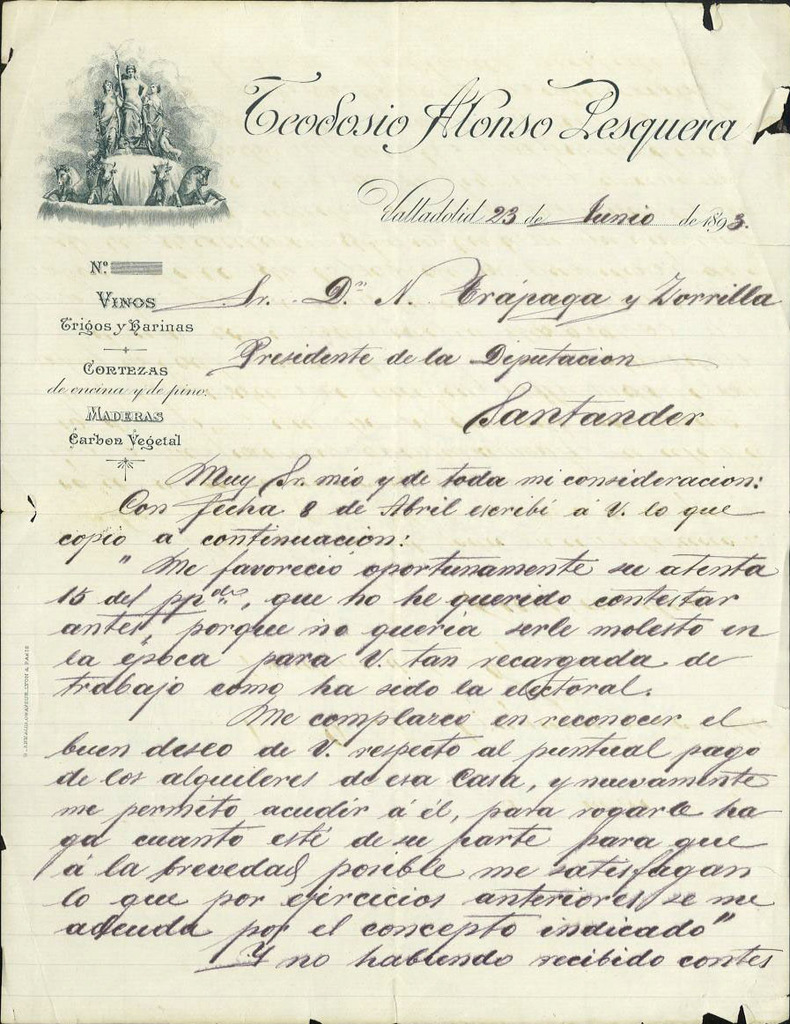 Teodosio Alonso Pesquera
Valladolid 23 de Junio de 1893.
N.º
VINOS
Trigos y Harinas
CORTEZAS
de encina y de pino.
MADERAS
Carbon Vegetal
Sr. D.n N. Trápaga y Zorrilla
Presidente de la Diputacion
Santander
Muy Sr. mio y de toda mi consideracion:
Con fecha 8 de Abril escribí á V. lo que
copio a continuacion:
"Me favoreció oportunamente su atenta
15 del pp.do, que no he querido contestar
antes, porque no queria serle molesto en
la época para V. tan recargada de
trabajo como ha sido la electoral.
Me complazco en reconocer el
buen deseo de V. respecto al puntual pago
de los alquileres de esa Casa, y nuevamente
me permito acudir á él, para rogarle ha
ga cuanto esté de su parte para que
á la brevedad posible me satisfagan
lo que por ejercicios anteriores se me
adeuda por el concepto indicado"
Y no habiendo recibido contes